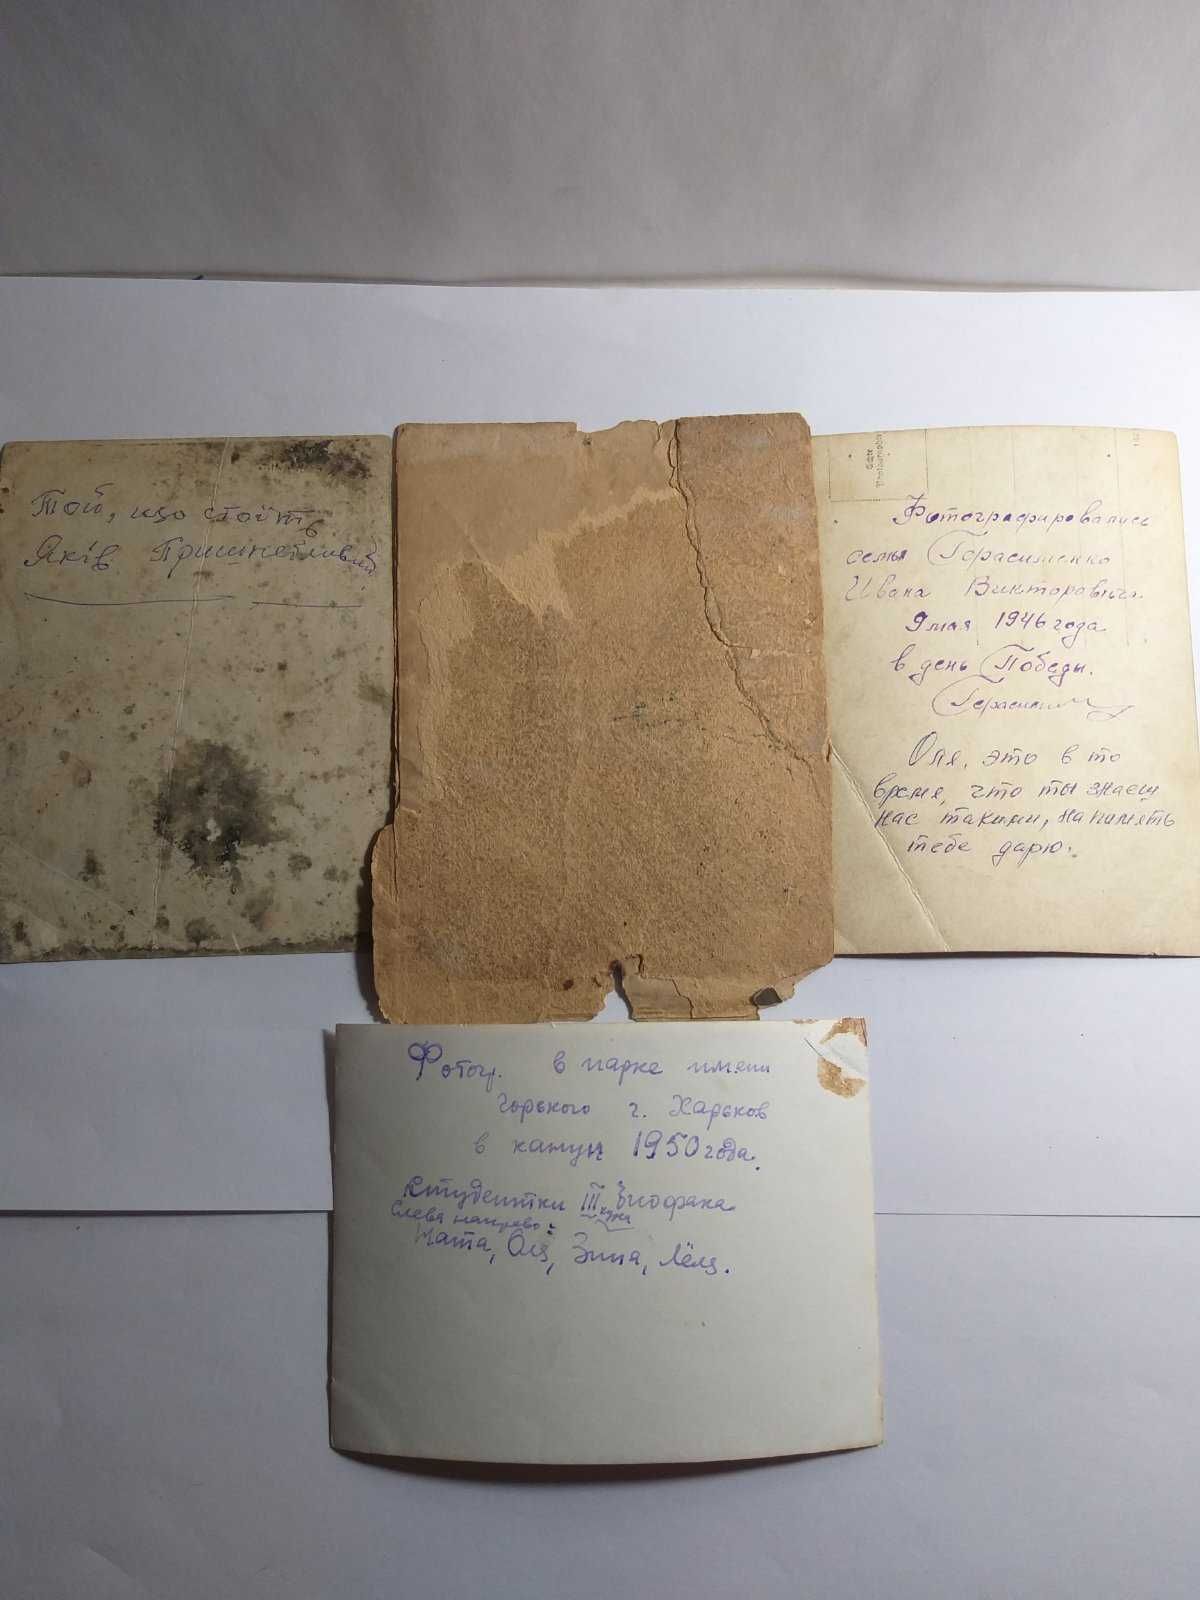 Той, що стоїть
Яків
Фотографировались
семья Герасименко
Ивана Викторовича.
9 мая 1946 года
в день Победы.
Оля, это в то
время, что ты знаеш
нас такими, на память
тебе дарю.
Фотогр. в парке имени
Горького г. Харьков
в канун 1950 года.
Студентки III курса биофака
Слева направо:
Ната, Оля, Зина, Лёля.